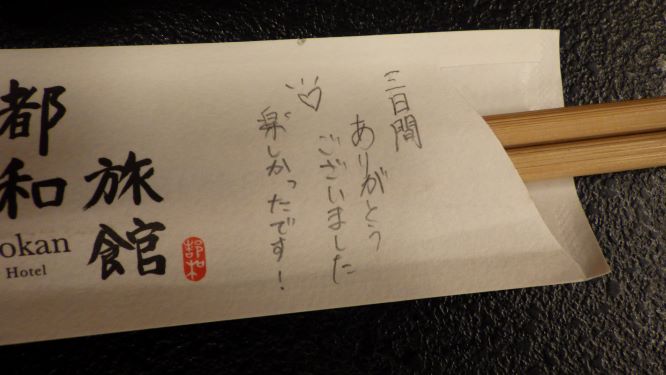 三日間
ありがとう
ございました
楽しかったです！
都和
旅館
okan
Hotel
都和